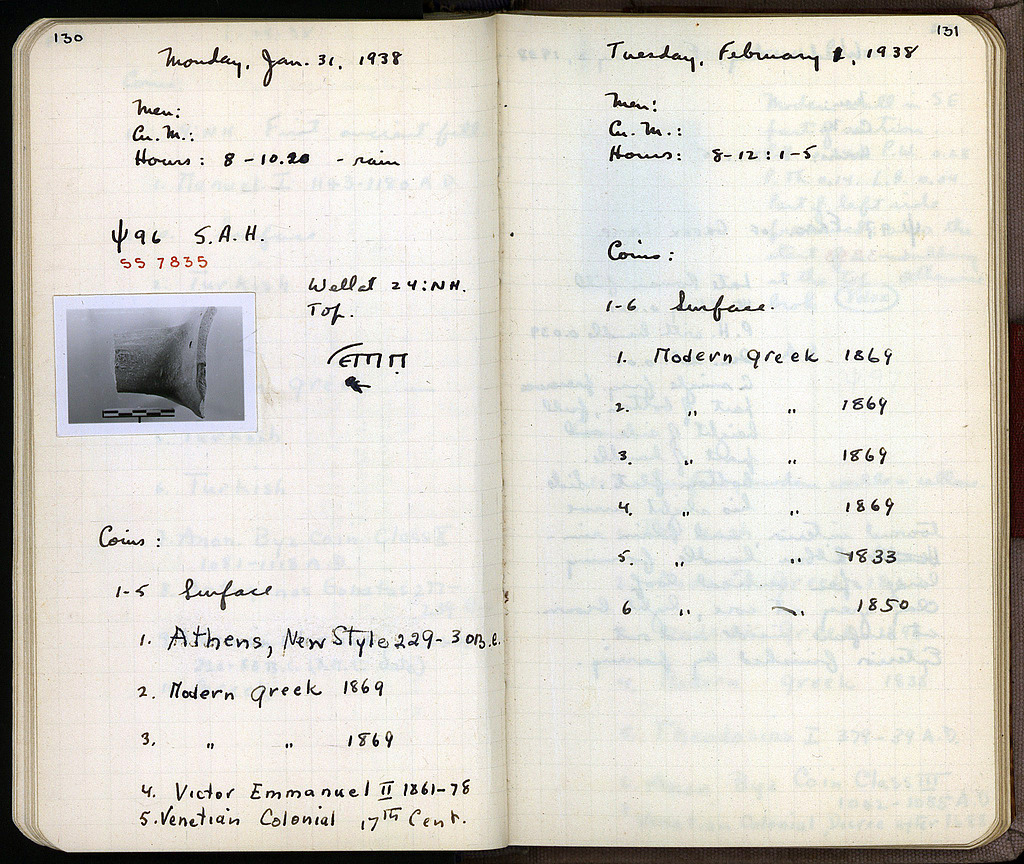 130
Monday, Jan. 31, 1938
Men:
Cu. M.:
Hours: 8 - 10.20 - rain
ψ 96 S.A.H.
SS 7835
Well at 24:NH.
Top.
Coins:
1-5 Surface
1. Athens, New Style 229-30 B.C.
2. Modern Greek 1869
3. " " 1869
4. Victor Emmanuel II 1861-78
5. Venetian Colonial 17th Cent.
131
Tuesday, February 1, 1938
Men:
Cu. M.:
Hours: 8-12 : 1-5
Coins:
1-6 Surface.
1. Modern Greek 1869
2. " " 1869
3. " " 1869
4. " " 1869
5. " " 1833
6 " " 1850